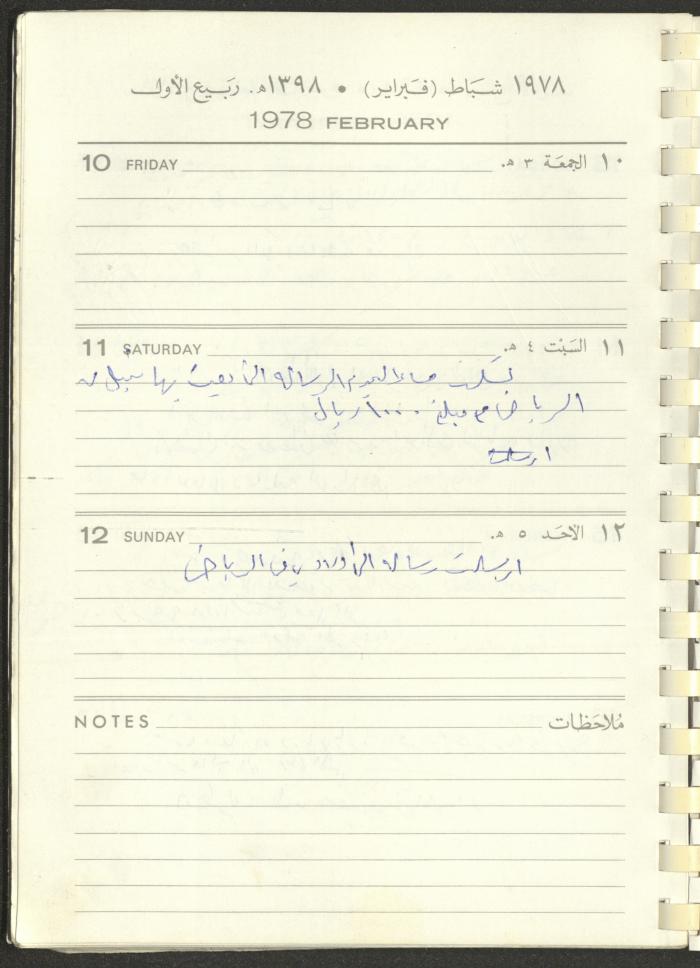 ١٩٧٨ شباط (فبراير) • ١٣٩٨هـ. ربيع الأول
1978 FEBRUARY
10 FRIDAY ١٠ الجمعة ٣ هـ.
11 SATURDAY ١١ السبت ٤ هـ.
الرسالة بها
الرياض مبلغ ١٠٠٠ ريال
ارسلت
12 SUNDAY ١٢ الأحد ٥ هـ.
ارسلت رساله الى في الرياض
NOTES ملاحظات